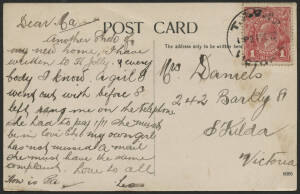 Dear Ma
POST CARD
The address only to be written here
Another Photo of
my new home, I have
written to H Jolly & every
body I know. A girl I
went out with before I
left rang me on the telephone
she had to pay 1/11 She must
be in love Eh! my own girl
has not missed a mail
she must have the same
complaint. Love to all
How is
Mrs Daniels
242 Barkly St
St Kilda
Victoria